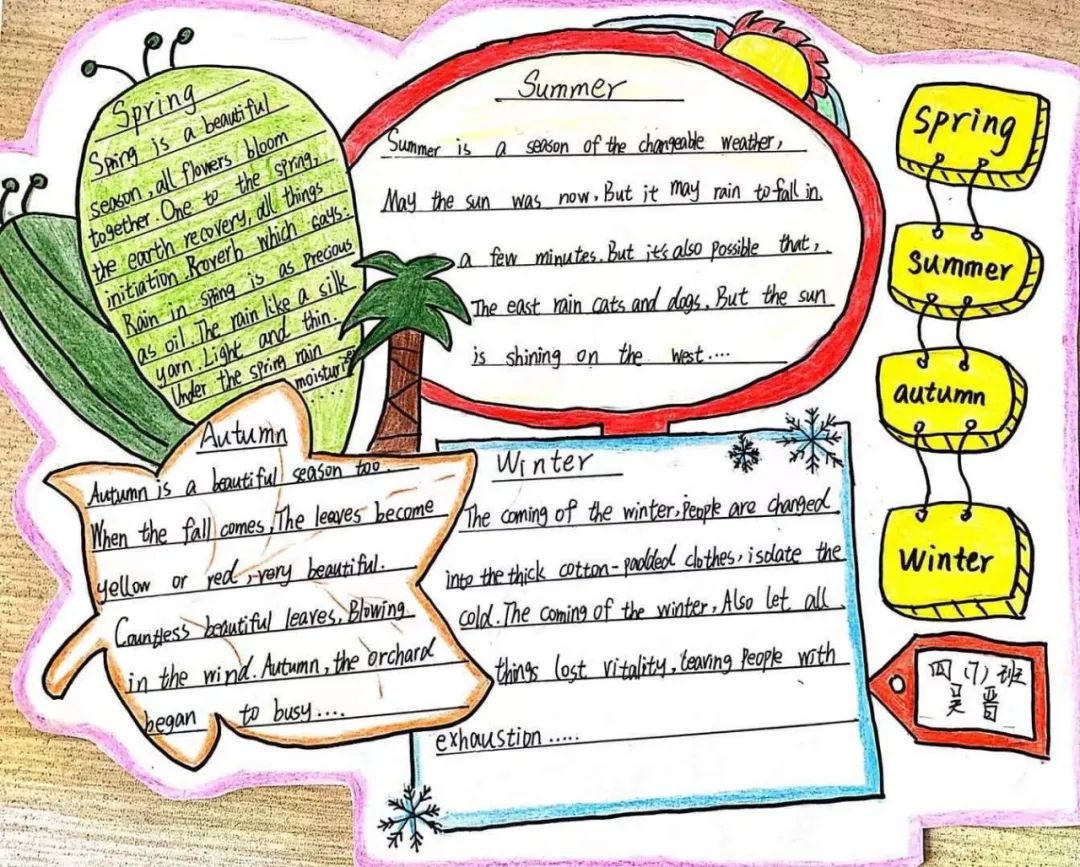 Spring
Spring is a beautiful
season, all flowers bloom
together. One to the spring,
the earth recovery, all things
initiation. Proverb which says:
Rain in spring is as precious
as oil. The rain like a silk
yarn. Light and thin.
Under the spring rain
moisturi
......
Summer
Summer is a season of the changeable weather,
May the sun was now. But it may rain to fall in
a few minutes. But it's also possible that,
The east rain cats and dogs. But the sun
is shining on the west....
Autumn
Autumn is a beautiful season too.
When the fall comes, The leaves become
yellow or red, very beautiful.
Countless beautiful leaves. Blowing
in the wind. Autumn, the orchard
began to busy....
Winter
The coming of the winter, People are changed
into the thick cotton-padded clothes, isolate the
cold. The coming of the winter, Also let all
things lost vitality, leaving people with
exhaustion.....
Spring
Summer
autumn
Winter
四(7)班
吴晋